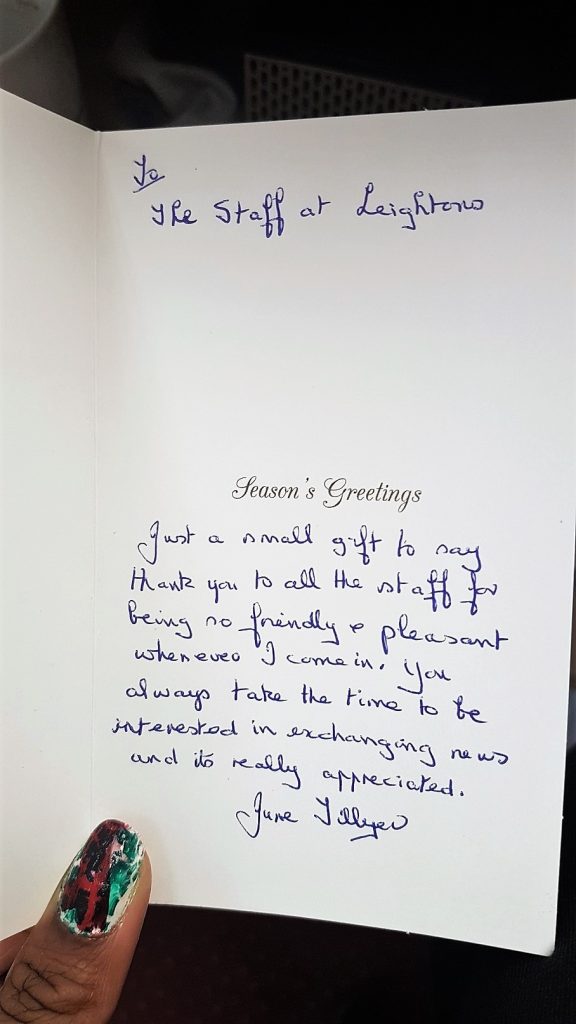 To
The Staff at Leightons
Season's Greetings
Just a small gift to say
thank you to all the staff for
being so friendly & pleasant
whenever I come in. You
always take the time to be
interested in exchanging news
and its really appreciated.
June Tillyer